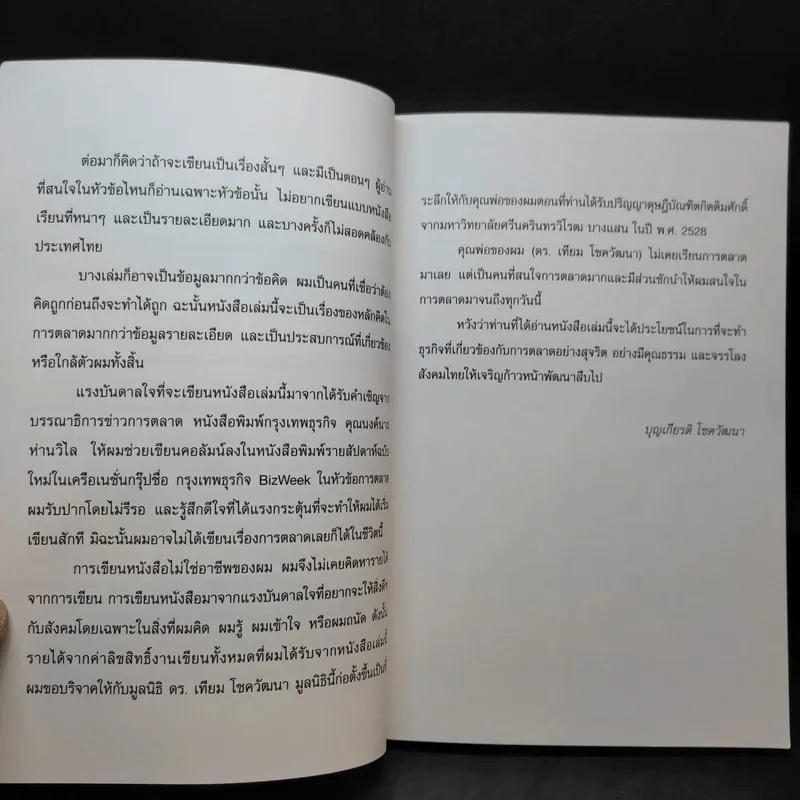 ต่อมาก็คิดว่าถ้าจะเขียนเป็นเรื่องสั้นๆ และมีเป็นตอนๆ ผู้อ่าน
ที่สนใจในหัวข้อไหนก็อ่านเฉพาะหัวข้อนั้น ไม่อยากเขียนแบบหนังสือ
เรียนที่หนาๆ และเป็นรายละเอียดมาก และบางครั้งก็ไม่สอดคล้องกับ
ประเทศไทย
บางเล่มก็อาจเป็นข้อมูลมากกว่าข้อคิด ผมเป็นคนที่เชื่อว่าต้อง
คิดถูกก่อนถึงจะทำได้ถูก ฉะนั้นหนังสือเล่มนี้จะเป็นเรื่องของหลักคิดใน
การตลาดมากกว่าข้อมูลรายละเอียด และเป็นประสบการณ์ที่เกี่ยวข้อง
หรือใกล้ตัวผมทั้งสิ้น
แรงบันดาลใจที่จะเขียนหนังสือเล่มนี้มาจากได้รับคำเชิญจาก
บรรณาธิการข่าวการตลาด หนังสือพิมพ์กรุงเทพธุรกิจ คุณนงค์นาถ
ห่านวิไล ให้ผมช่วยเขียนคอลัมน์ลงในหนังสือพิมพ์รายสัปดาห์ฉบับ
ใหม่ในเครือเนชั่นกรุ๊ปชื่อ กรุงเทพธุรกิจ BizWeek ในหัวข้อการตลาด
ผมรับปากโดยไม่รีรอ และรู้สึกดีใจที่ได้แรงกระตุ้นที่จะทำให้ผมได้เริ่ม
เขียนสักที มิฉะนั้นผมอาจไม่ได้เขียนเรื่องการตลาดเลยก็ได้ในชีวิตนี้
การเขียนหนังสือไม่ใช่อาชีพของผม ผมจึงไม่เคยคิดหารายได้
จากการเขียน การเขียนหนังสือมาจากแรงบันดาลใจที่อยากจะให้สิ่งดีๆ
กับสังคมโดยเฉพาะในสิ่งที่ผมคิด ผมรู้ ผมเข้าใจ หรือผมถนัด ดังนั้น
รายได้จากค่าลิขสิทธิ์งานเขียนทั้งหมดที่ผมได้รับจากหนังสือเล่มนี้
ผมขอบริจาคให้กับมูลนิธิ ดร. เทียม โชควัฒนา มูลนิธินี้ก่อตั้งขึ้นเป็นที่
ระลึกให้กับคุณพ่อของผมตอนที่ท่านได้รับปริญญาดุษฎีบัณฑิตกิตติมศักดิ์
จากมหาวิทยาลัยศรีนครินทรวิโรฒ บางแสน ในปี พ.ศ. 2528
คุณพ่อของผม (ดร. เทียม โชควัฒนา) ไม่เคยเรียนการตลาด
มาเลย แต่เป็นคนที่สนใจการตลาดมากและมีส่วนชักนำให้ผมสนใจใน
การตลาดมาจนถึงทุกวันนี้
หวังว่าท่านที่ได้อ่านหนังสือเล่มนี้จะได้ประโยชน์ในการที่จะทำ
ธุรกิจที่เกี่ยวข้องกับการตลาดอย่างสุจริต อย่างมีคุณธรรม และจรรโลง
สังคมไทยให้เจริญก้าวหน้าพัฒนาสืบไป
บุญเกียรติ โชควัฒนา